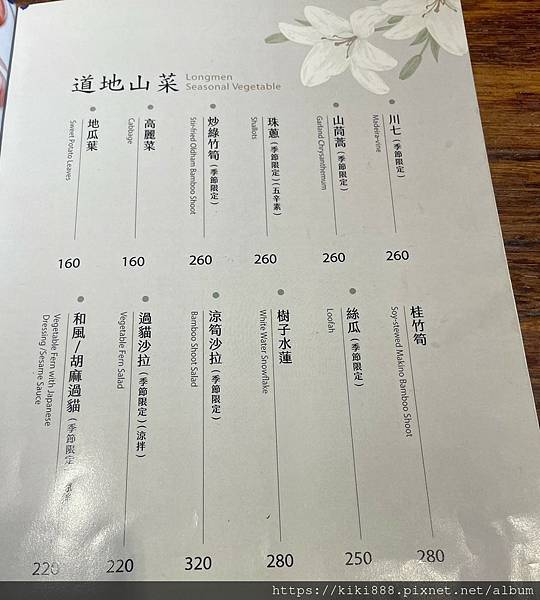 道地山菜
Longmen
Seasonal Vegetable
川七(季節限定)
Madeira-vine
260
山茼蒿(季節限定)
Garland Chrysanthemum
260
珠蔥(季節限定)(五辛素)
Shallots
260
炒綠竹筍(季節限定)
Stir-fried Oldham Bamboo Shoot
260
高麗菜
Cabbage
160
地瓜葉
Sweet Potato Leaves
160
桂竹筍
Soy-stewed Makino Bamboo Shoot
280
絲瓜(季節限定)
Loofah
250
樹子水蓮
White Water Snowflake
280
涼筍沙拉(季節限定)
Bamboo Shoot Salad
320
過貓沙拉(季節限定)(涼拌)
Vegetable Fern Salad
220
和風/胡麻過貓(季節限定
Vegetable Fern with Japanese
Dressing /Sesame Sauce
220
https://kiki888.pixnet.net/album